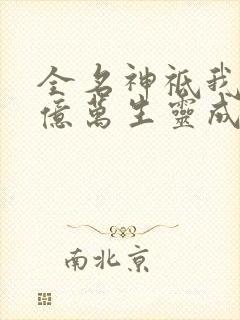 全名神祇我
億萬生靈成
南北京